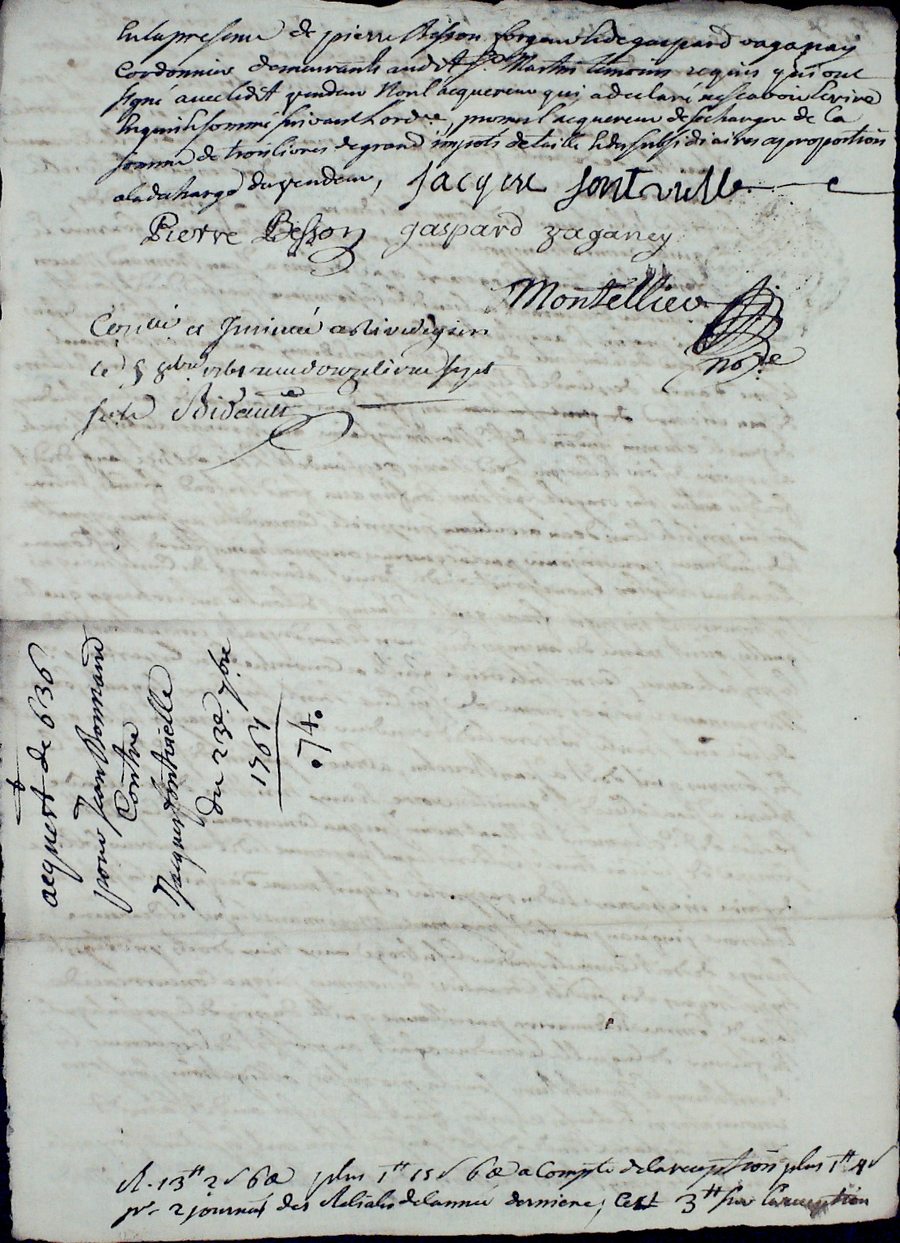 En la presence de pierre Besson forgeur & de gaspard zaganay
Cordonnier demeurants audit St Martin temoins requis qui ont
signé avec ledit vendeur Non l'acquereur qui a declaré ne scavoir Ecrire
Enquis & sommé suivant L'ordce, promet l'acquereur de se charger de la
somme de trois livres de grand impots de taille & des subsidiaires a proportion
a la decharge du vendeur, Jacque fontvielle
Pierre Besson gaspard zaganey
Montellier
nore
Conllé et Jnsinué a Rivedegier
le 5 8bre 1761 receu douze livres sept
sols Bidault
acquest de 636
pour jean Bonnard
Contre
Jacques fontvielle
du 23e 7bre
1761
.74.
R. 13tt 2s 6d plus 1tt 15s 6d a Compte de la reception plus 1tt 4s
pr 2 journés des de l'année derniere, Cest 3tt sur la reception